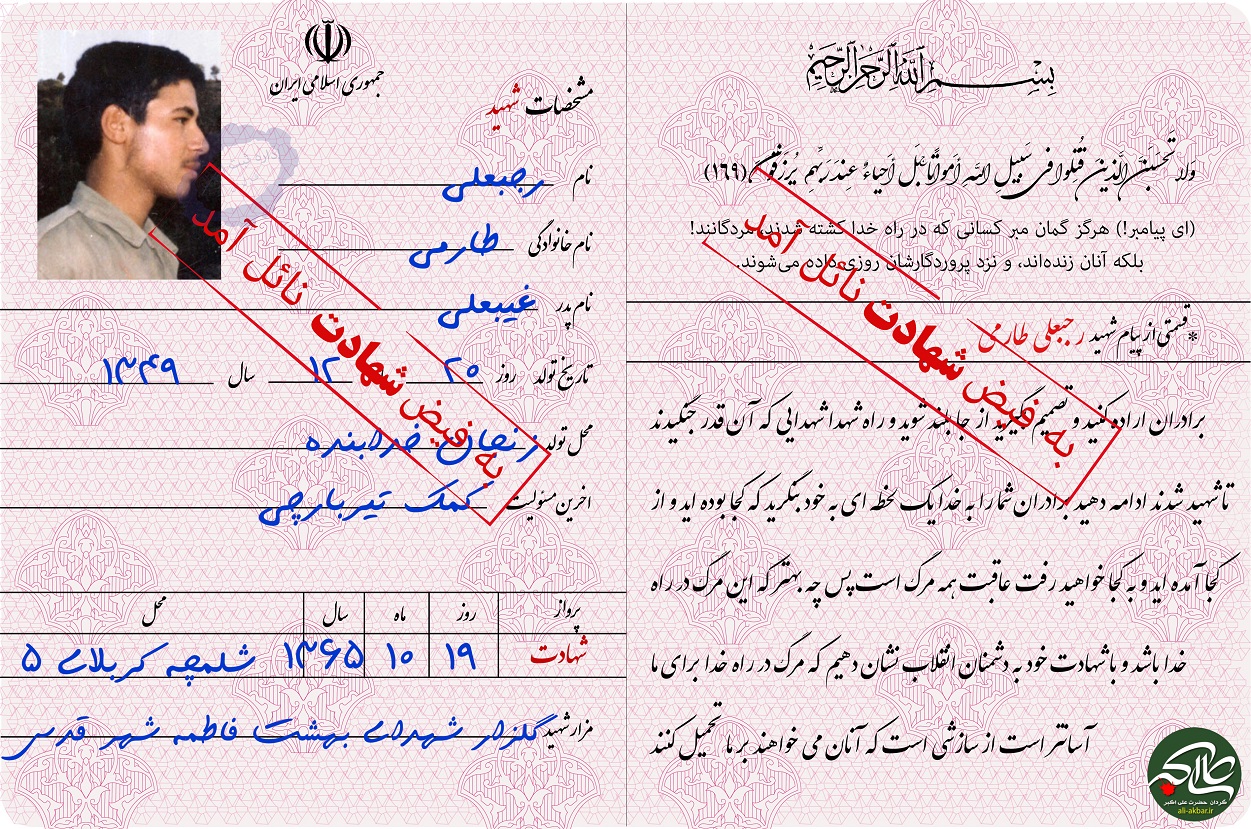 بسم الله الرحمن الرحیم
وَلا تَحْسَبَنَّ الَّذینَ قُتِلوا فی سَبیلِ اللهِ أمواتًا بَلْ أحیاءٌ عِندَ رَبِّهِم یُرزَقونَ (۱۶۹)
(ای پیامبر!) هرگز گمان مبر کسانی که در راه خدا کشته شدند، مردگانند!
بلکه آنان زنده‌اند، و نزد پروردگارشان روزی داده می‌شوند.
* قسمتی از پیام شهید رجبعلی طارمی
برادران اراده کنید و تصمیم بگیرید از جا بلند شوید و راه شهدا شهدایی که آن قدر جنگیدند
تا شهید شدند ادامه دهید برادران شما را به خدا یک لحظه ای به خود بنگرید که کجا بوده اید و از
کجا آمده اید و به کجا خواهید رفت عاقبت همه مرگ است پس چه بهتر که این مرگ در راه
خدا باشد و با شهادت خود به دشمنان انقلاب نشان دهیم که مرگ در راه خدا برای ما
آسانتر است از سازشی است که آنان می خواهند بر ما تحمیل کنند
به فیض شهادت نائل آمد
گردان حضرت علی اکبر
ali-akbar.ir
جمهوری اسلامی ایران
مشخصات شهید
نام رجبعلی
نام خانوادگی طارمی
نام پدر غیبعلی
تاریخ تولد روز ۲۰ ۱۲ سال ۱۳۴۹
محل تولد زنجان خدابنده
اخرین مسئولیت کمک تیربارچی
به فیض شهادت نائل آمد
پرواز روز ماه سال محل
شهادت ۱۹ ۱۰ ۱۳۶۵ شلمچه کربلای ۵
مزار شهید گلزار شهدای بهشت فاطمه شهر قدس